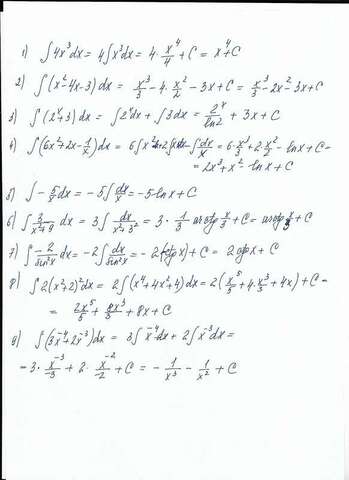 1) ∫4x³dx = 4∫x³dx = 4 · x⁴/4 + C = x⁴+C
2) ∫(x²-4x-3)dx = x³/3 - 4 · x²/2 - 3x + C = x³/3 - 2x² - 3x + C
3) ∫(2ˣ+3)dx = ∫2ˣdx + ∫3dx = 2ˣ/ln2 + 3x + C
4) ∫(6x²+2x-1/x)dx = 6∫x²dx + 2∫xdx - ∫dx/x = 6·x³/3 + 2·x²/2 - lnx + C =
= 2x³ + x² - lnx + C
5) ∫-5/x dx = -5∫dx/x = -5·lnx + C
6) ∫3/(x²+9) dx = 3∫dx/(x²+3²) = 3 · 1/3 arctg x/3 + C = arctg x/3 + C
7) ∫-2/sin²x dx = -2∫dx/sin²x = -2(-ctgx) + C = 2ctgx + C
8) ∫2(x²+2)²dx = 2∫(x⁴+4x²+4)dx = 2(x⁵/5 + 4·x³/3 + 4x) + C =
= 2x⁵/5 + 8x³/3 + 8x + C
9) ∫(3x⁻⁴+2x⁻³)dx = 3∫x⁻⁴dx + 2∫x⁻³dx =
= 3 · x⁻³/-3 + 2 · x⁻²/-2 + C = -1/x³ - 1/x² + C